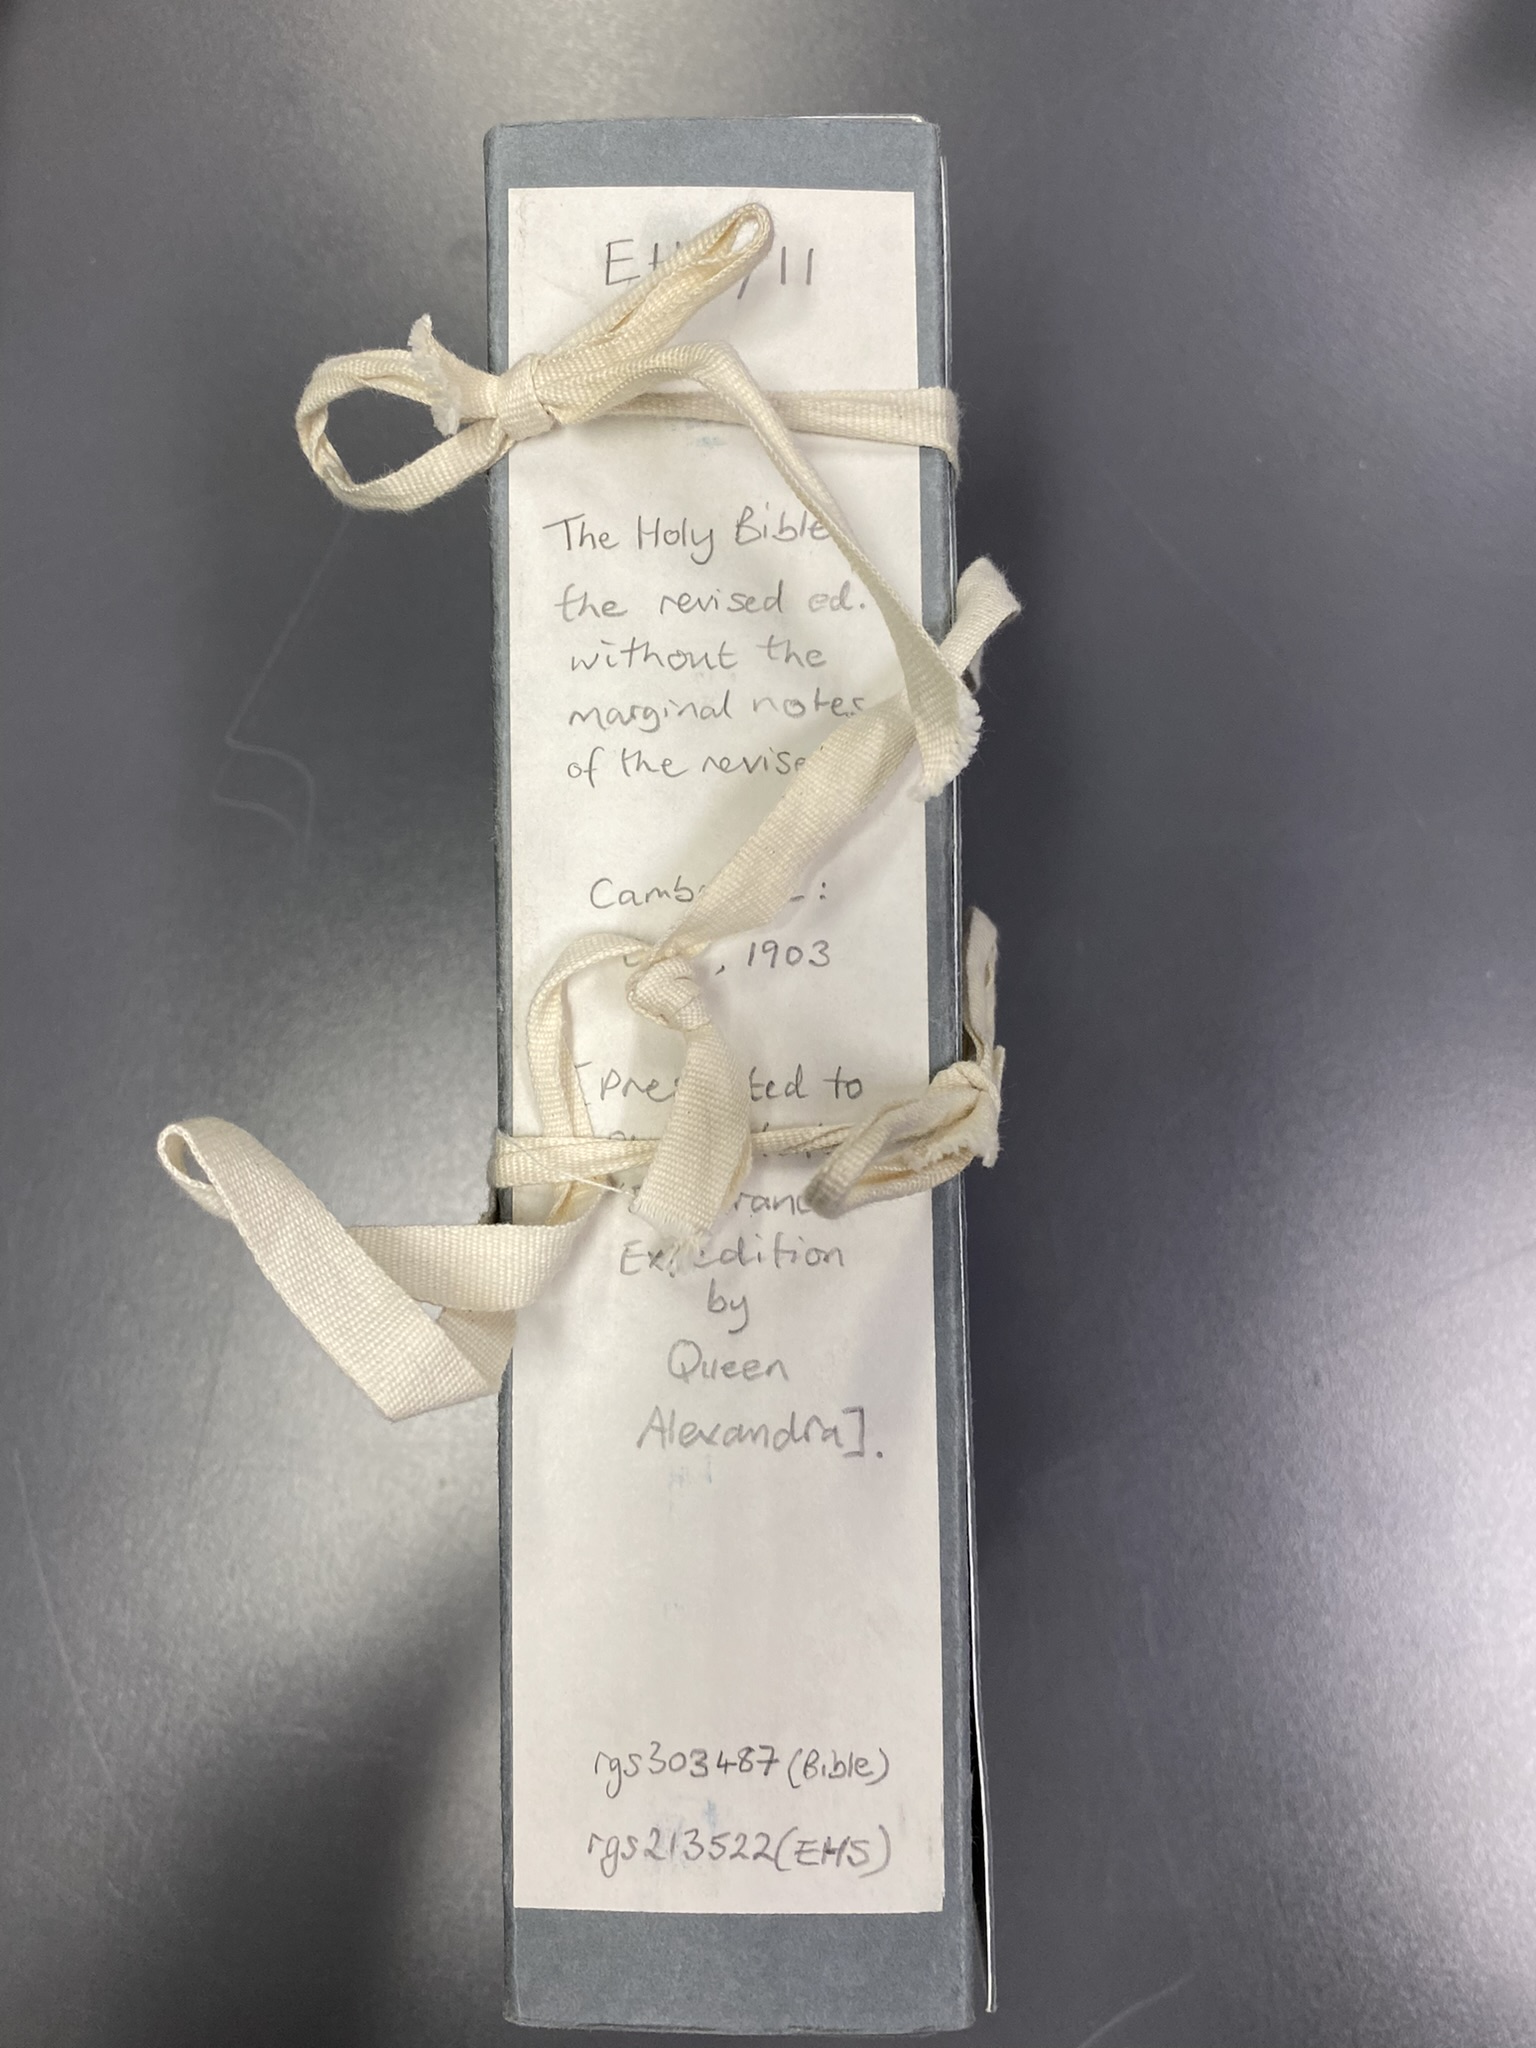 The Holy Bible
the revised ed.
without the
marginal notes
of the
, 1903
to
Expedition
by
Queen
Alexandra].
rgs303487 (Bible)
rgs213522 (EHS)